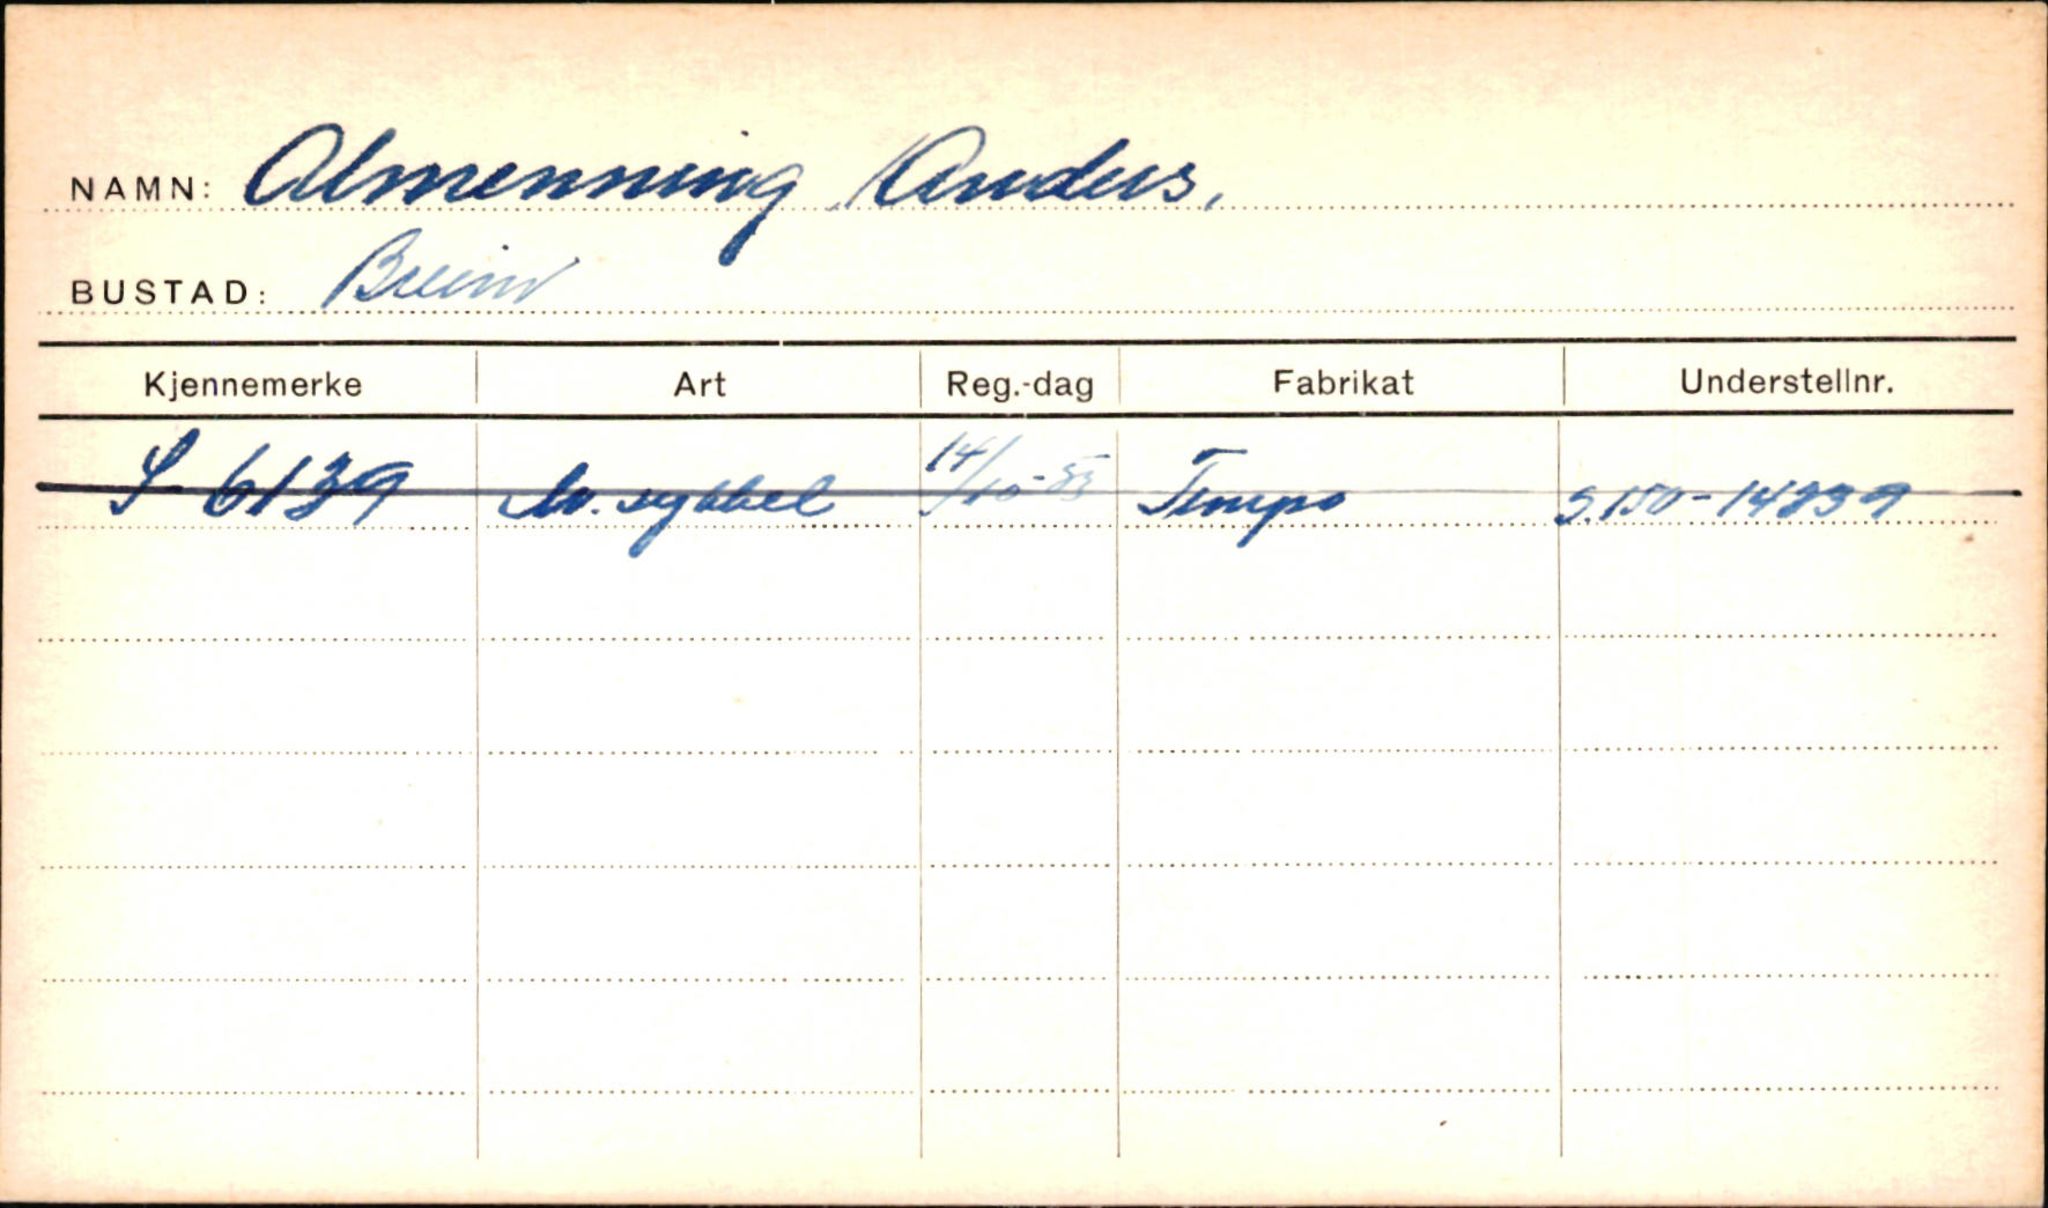 NAMN: Almenning Anders,
BUSTAD: Breim
Kjennemerke Art Reg.-dag Fabrikat Understellnr.
S-6139 M. sykkel 14/10-53 Tempo S.150-14239